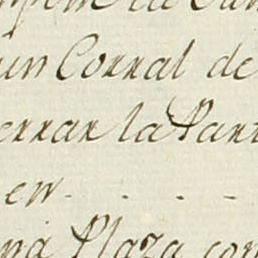 un Corral de
errar la Part
en - - -
na Plaza con